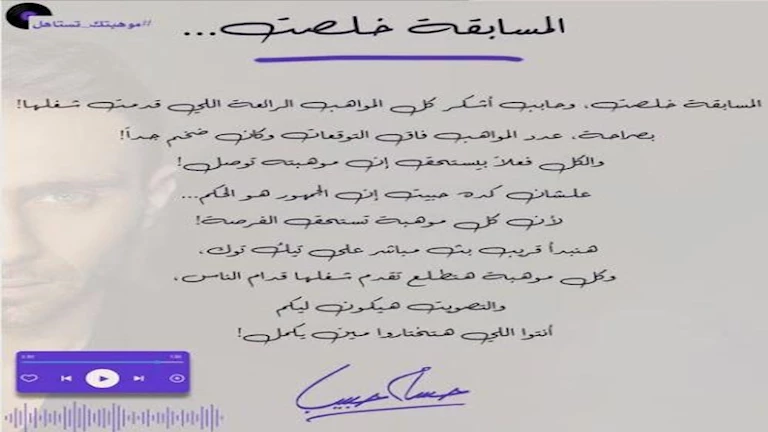 #موهبتك_تستاهل
المسابقة خلصت...
المسابقة خلصت، وحابب أشكر كل المواهب الرائعة اللي قدمت شغلها!
بصراحة، عدد المواهب فاق التوقعات وكان ضخم جداً!
والكل فعلاً بيستحق إن موهبته توصل!
علشان كده حبيت إن الجمهور هو الحكم...
لأن كل موهبة تستحق الفرصة!
هنبدأ قريب بث مباشر على تيك توك،
وكل موهبة هتطلع تقدم شغلها قدام الناس،
والتصويت هيكون ليكم
أنتوا اللي هتختاروا مين يكمل!
حسام حبيب